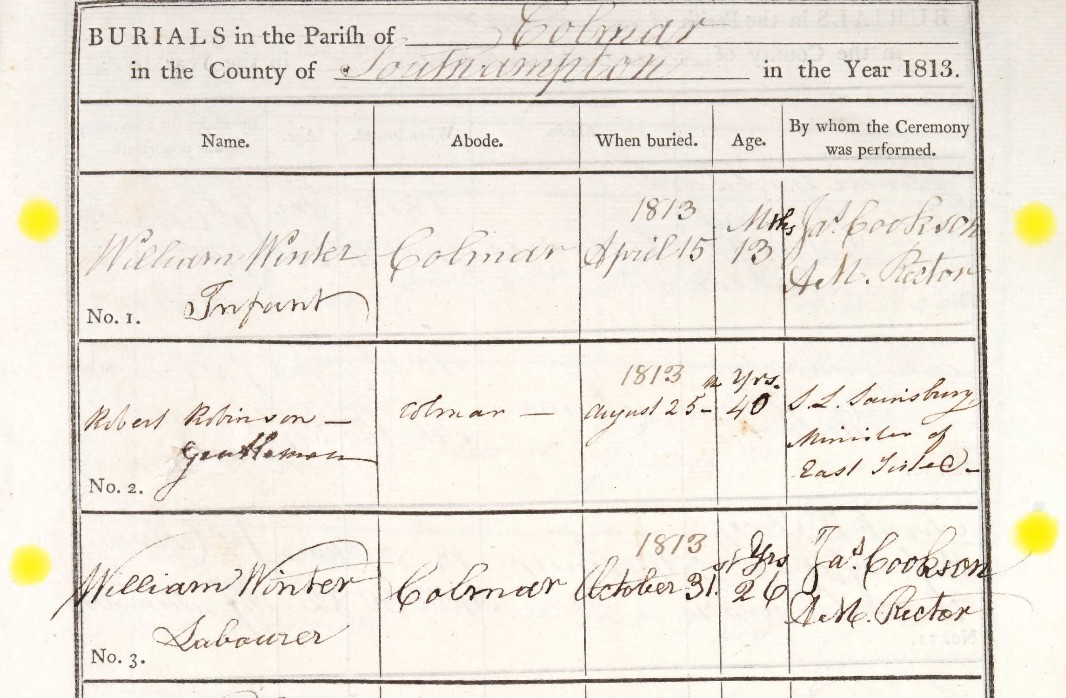 BURIALS in the Parish of Colmar
in the County of Southampton in the Year 1813.
Name. Abode. When buried. Age. By whom the Ceremony was performed.
1813 Mths Jas Cookson
William Winter Colmar April 15 13 A.M. Rector
No. 1. Infant
1813 Yrs. S. L. Sainsbury
Robert Robinson — Colmar — August 25 – 40 Minister of
Gentleman East Tisted –
No. 2.
1813 Yrs Jas Cookson
William Winter Colmar October 31. 26 A.M. Rector
Labourer
No. 3.